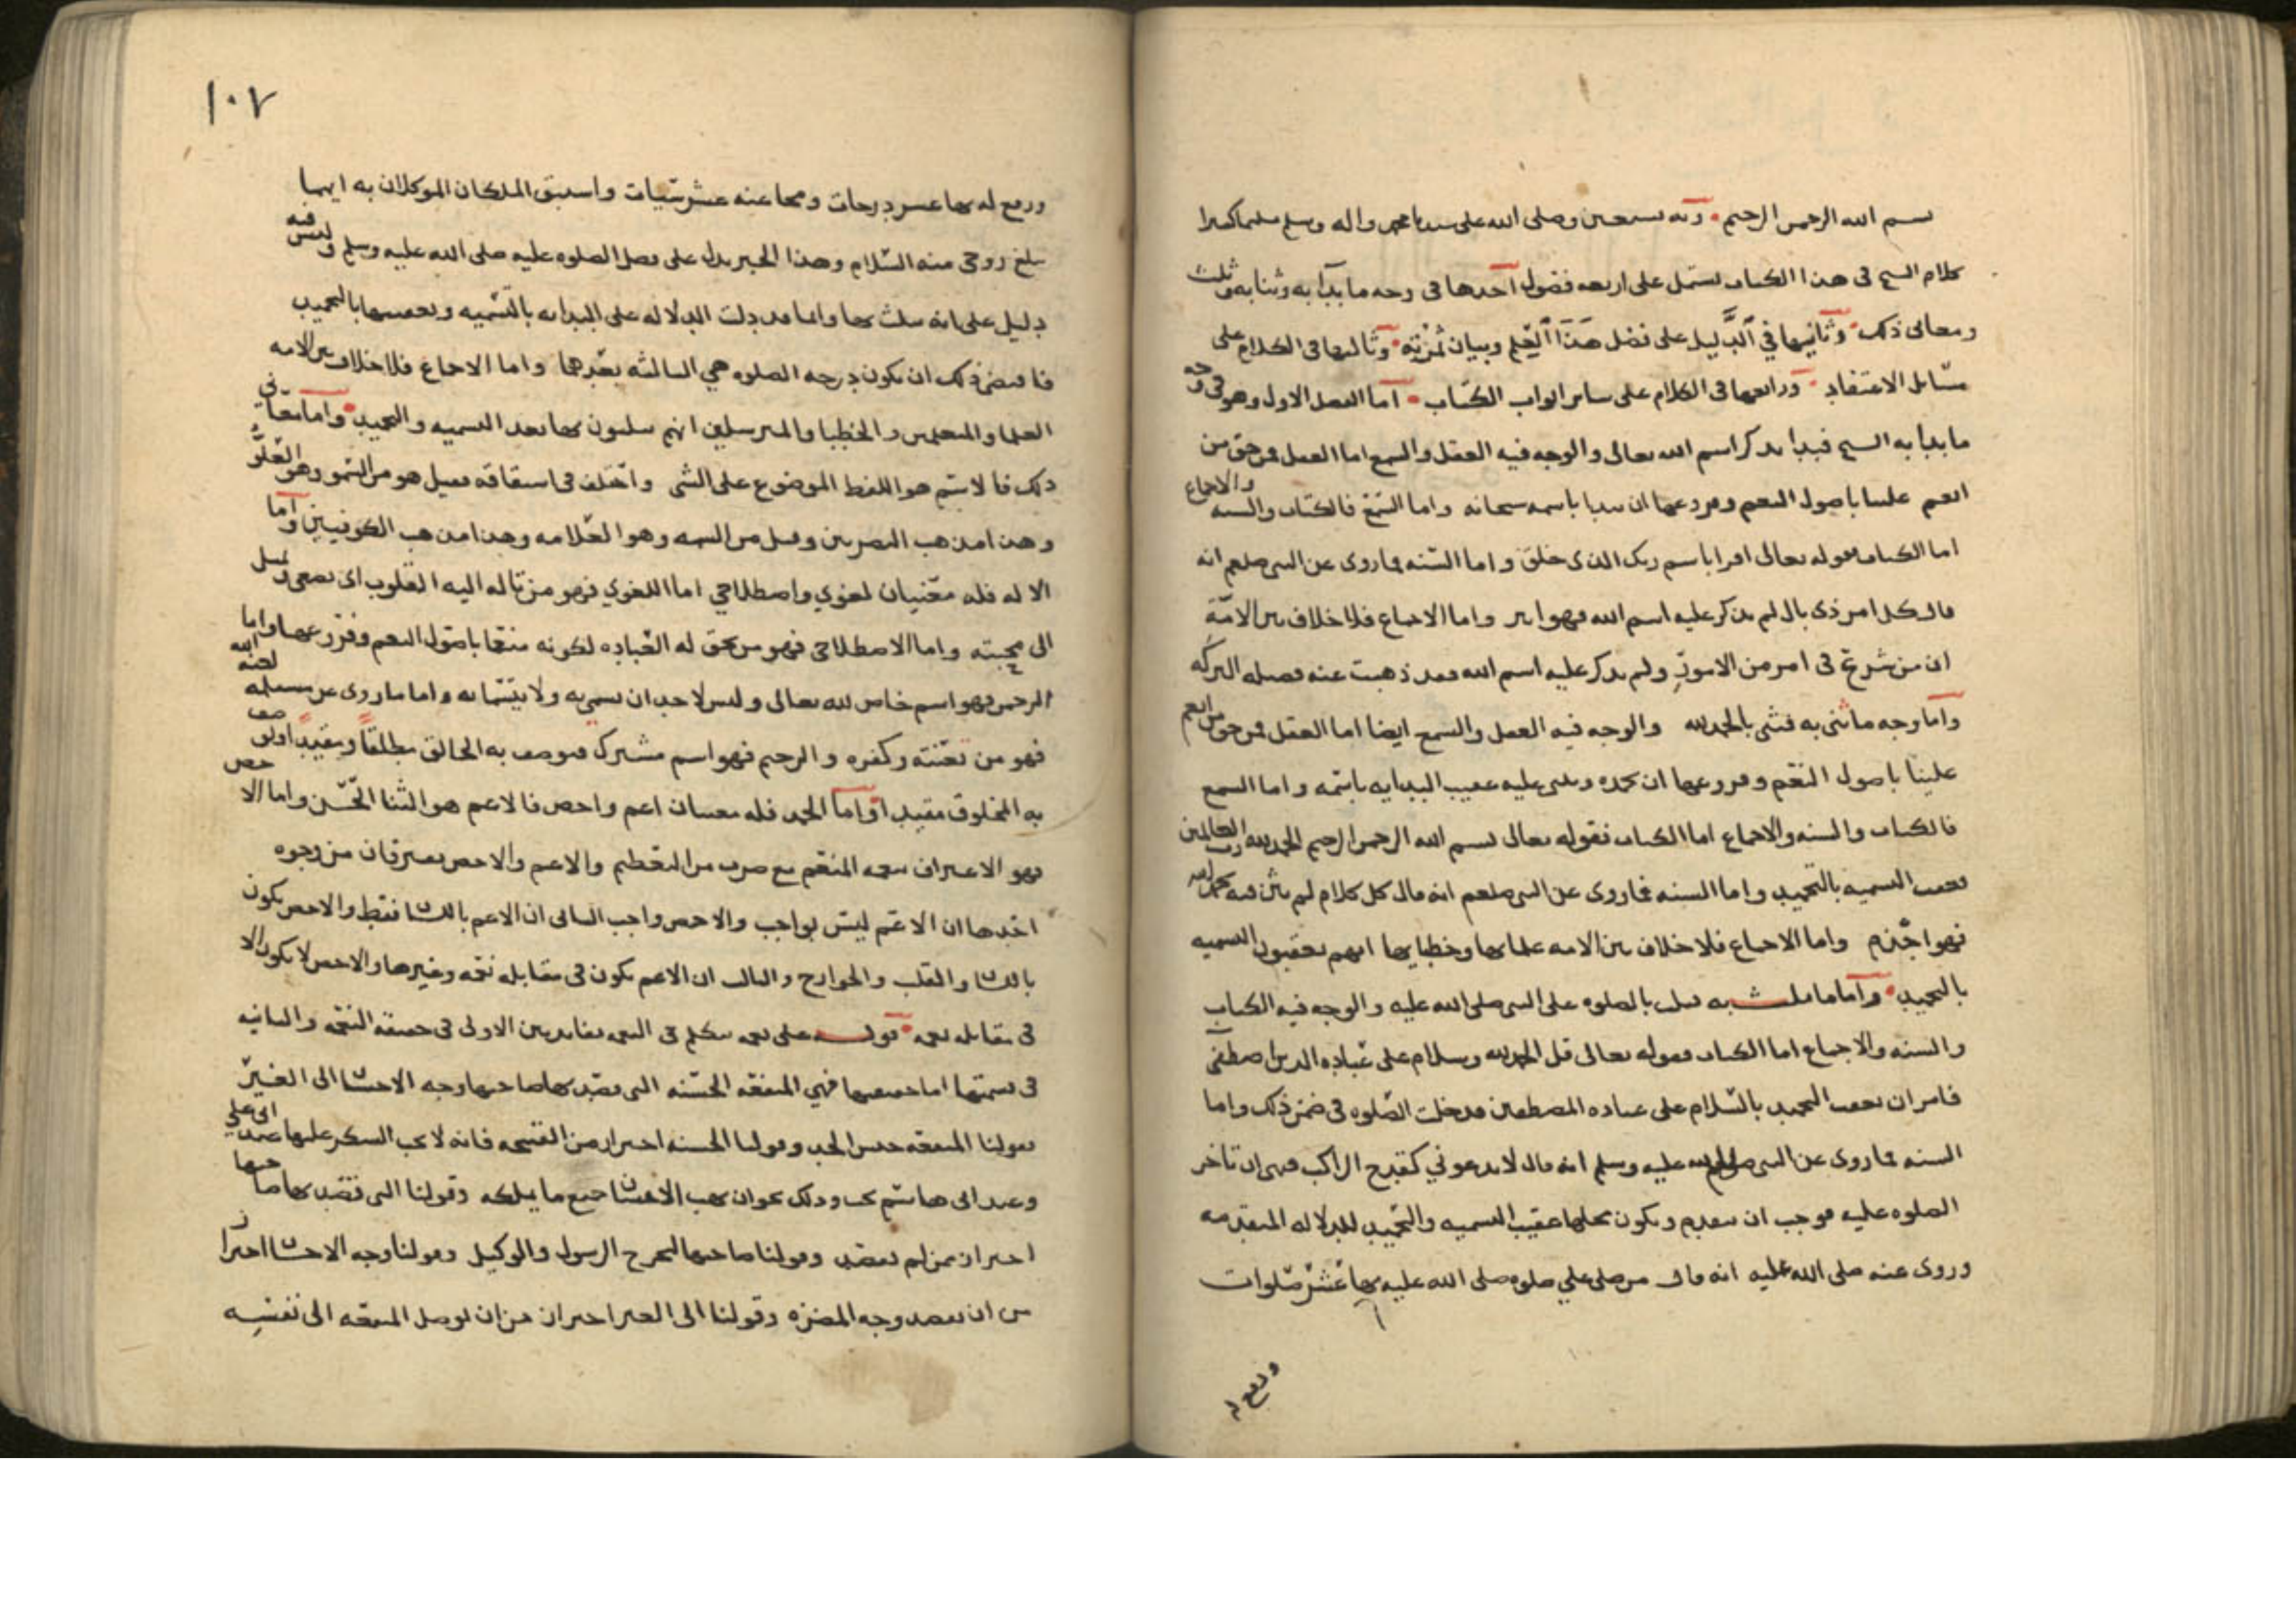 بسم الله الرحمن الرحيم وبه نستعين وصلى الله على سيدنا محمد واله وسلم تسليما كثيرا
كلام الشيخ فى هذا الكتاب يشتمل على اربعه فصول احدها فى وجه ما بدأ به وثنا به وثلث
ومعانى ذلك وثانيها في الدليل على فضل هذا العلم وبيان ثمرته وثالثها فى الكلام على
مسائل الاعتقاد ورابعها فى الكلام على ساير ابواب الكتاب اما الفصل الاول وهو فى وجه
ما بدا به الشيخ فبدا بذكر اسم الله تعالى والوجه فيه العقل والسمع اما العقل فمن حق من
انعم علينا باصول النعم وفروعها ان نبدا باسمه سبحانه واما السمع فالكتاب والسنه والاجماع
اما الكتاب فقوله تعالى اقرا باسم ربك الذى خلق واما السنه فما روى عن النبى صلعم انه
قال كل امر ذى بال لم يذكر عليه اسم الله فهو ابتر واما الاجماع فلا خلاف بين الامة
ان من شرع فى امر من الامور ولم يذكر عليه اسم الله فقد ذهبت عنه فضيله البركه
واما وجه ما ثنى به فثنى بالحمد لله والوجه فيه العقل والسمع ايضا اما العقل فمن حق من انعم
علينا باصول النعم وفروعها ان نحمده ونثنى عليه عقيب البدايه باسمه واما السمع
فالكتاب والسنه والاجماع اما الكتاب فقوله تعالى بسم الله الرحمن الرحيم الحمد لله رب العالمين
فعقب التسميه بالتحميد واما السنه فما روى عن النبى صلعم انه قال كل كلام لم يثن فيه بحمد الله
فهو اجذم واما الاجماع فلا خلاف بين الامه علمايها وخطبايها انهم يعقبون التسميه
بالتحميد واما ما ثلث به فثلث بالصلوه على النبى صلى الله عليه والوجه فيه الكتاب
والسنه والاجماع اما الكتاب فقوله تعالى قل الحمد لله وسلام على عباده الذين اصطفى
فامر ان يعقب التحميد بالسلام على عباده المصطفين فدخلت الصلوه فى ضمن ذلك واما
السنه فما روى عن النبى صلى الله عليه وسلم انه قال لا تدعونى كقدح الراكب فنهى ان تاخر
الصلوه عليه فوجب ان تتقدم ويكون محلها عقيب التسميه والتحميد للدلاله المتقدمه
وروى عنه صلى الله عليه انه قال من صلى علي صلوه صلى الله عليه بها عشر صلوات
ورفع له
١٠٧
ورفع له بها عشر درجات ومحا عنه عشر سيات واستبق الملكان الموكلان به ايهما
يبلغ روحى منه السلام وهذا الخبر يدل على فضل الصلوه عليه صلى الله عليه وسلم وليس فيه
دليل على انه يثلث بها وانما قد دلت الدلاله على البدايه بالتسميه وتعقيبها بالتحميد
فاقتضى ذلك ان تكون درجه الصلوه هي الثالثه بعدهما واما الاجماع فلا خلاف بين الامه
العلما والمتعلمين والخطبا والمترسلين انهم يثلثون بها بعد التسميه والتحميد واما معانى
ذلك فالاسم هو اللفظ الموضوع على الشى واختلف فى اشتقاقه فقيل هو من السمو وهو العلو
وهذا مذهب البصريين وقيل من السمه وهو العلامه وهذا مذهب الكوفيين واما
الاله فله معنيان لغوي واصطلاحي اما اللغوي فهو من تاله اليه القلوب اى تصغى وتميل
الى محبته واما الاصطلاحى فهو من تحق له العباده لكونه منعما باصول النعم وفروعها واما
الرحمن فهو اسم خاص لله تعالى وليس لاحد ان يسمى به ولا يتسما به واما ما روى عن مسيلمه لعنه الله
فهو من تعنته وكفره والرحيم فهو اسم مشترك فوصف به الخالق مطلقا ومقيدا ووصف
به المخلوق مقيدا واما الحمد فله معنيان اعم واخص فالاعم هو الثنا الحسن واما الاخص
فهو الاعتراف بنعمه المنعم مع ضرب من التعظيم والاعم والاخص يفترقان من وجوه
احدها ان الاعم ليس بواجب والاخص واجب الثانى ان الاعم باللسان فقط والاخص يكون
باللسان والقلب والجوارح والثالث ان الاعم يكون فى مقابله نعمه وغيرها والاخص لا يكون الا
فى مقابله نعمه قوله على نعمه نتكلم فى النعمه بفايدتين الاولى فى حقيقه النعمه والثانيه
فى قسمتها اما حقيقتها فهي المنفعه الحسنه التى قصد بها صاحبها وجه الاحسان الى الغير
فقولنا المنفعه جنس الحد وقولنا الحسنه احتراز من القبيحه فانه لا يجب الشكر عليها عند ابى علي
وعند ابى هاشم يجب وذلك نحو ان يهب الانسان جميع ما يملكه وقولنا التى قصد بها صاحبها
احتراز ممن لم يقصد وقولنا صاحبها ليخرج الرسول والوكيل وقولنا وجه الاحسان احترازا
من ان يقصد وجه المضره وقولنا الى الغير احتراز من ان يوصل المنفعه الى نفسه